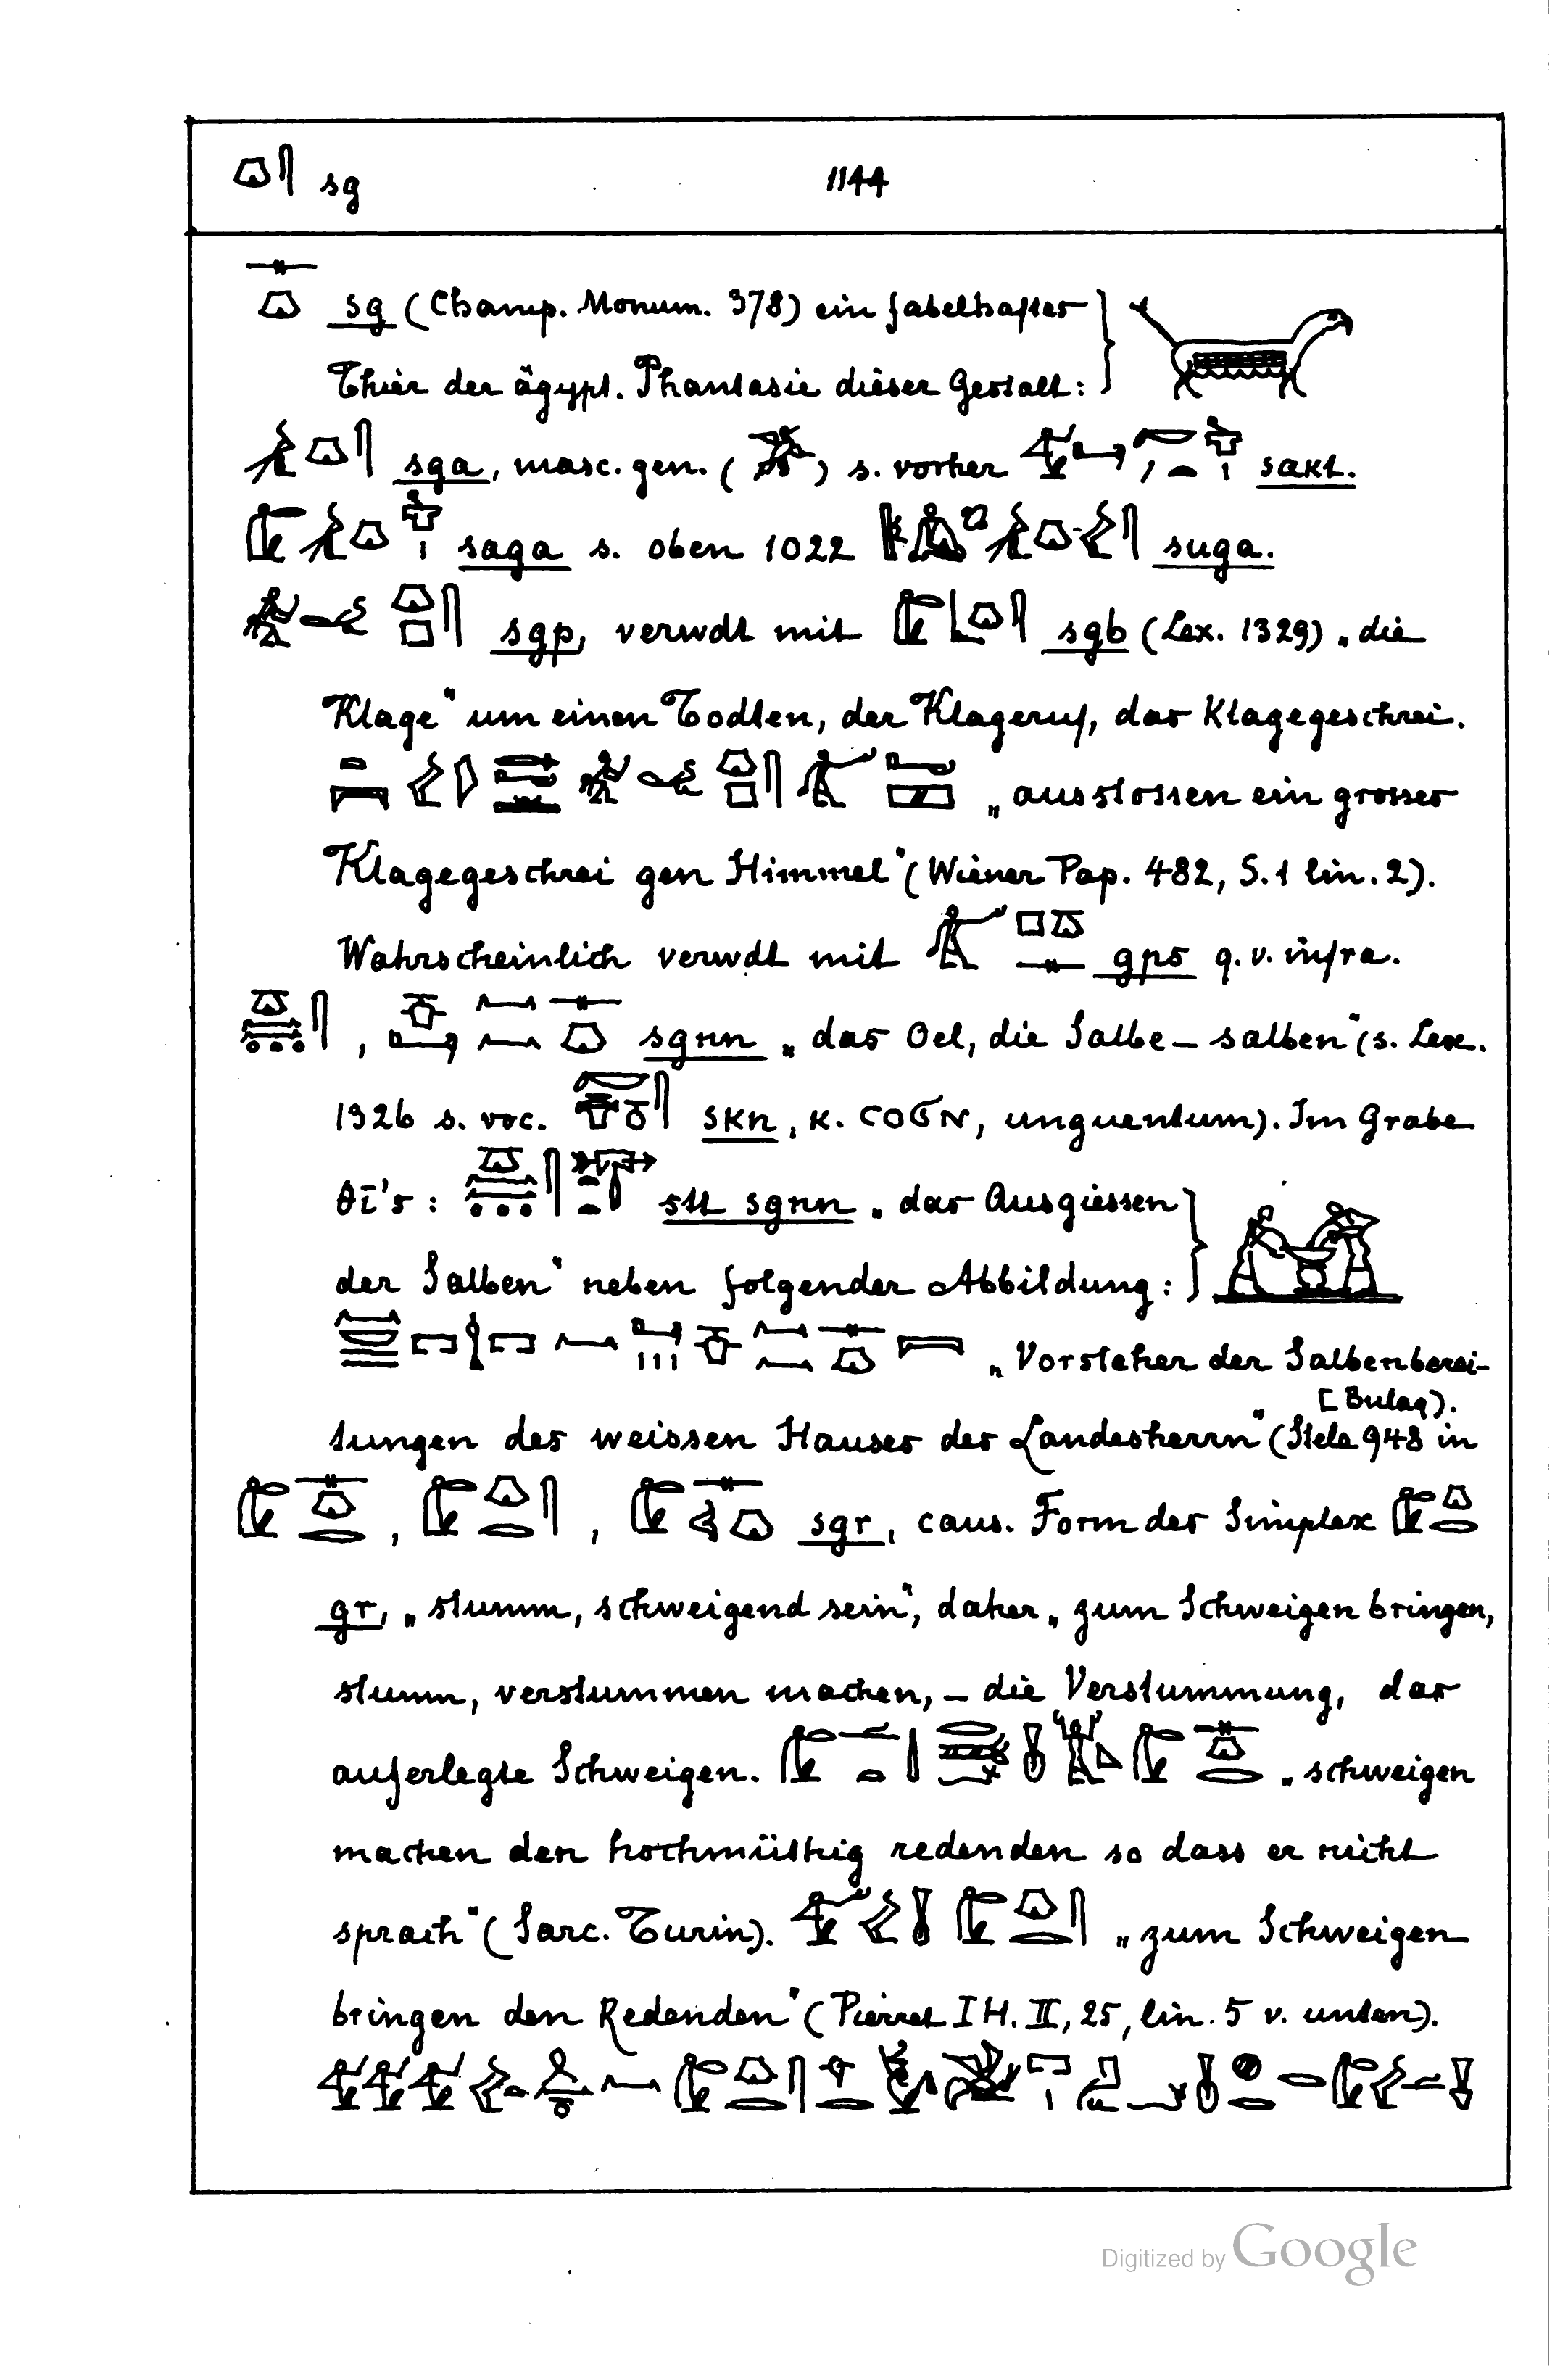 sg 1144
sg (Champ. Monum. 378) ein fabelhaftes
Thier der ägypt. Phantasie dieser Gestalt:
sga, masc. gen. ( ) s. vorher sakt.
saga s. oben 1022 suga.
sgp, verwdt mit sgb (Lex. 1329) „die
Klage" um einen Todten, der Klageruf, das Klagegeschrei.
„ausstossen ein grosses
Klagegeschrei gen Himmel" (Wiener Pap. 482, S. 1 lin. 2).
Wahrscheinlich verwdt mit gps q. v. infra.
, sgnn „das Oel, die Salbe – salben" (s. Lex.
1326 s. voc. skn, K. ⲤⲞϬⲚ, unguentum). Im Grabe
θī's: stt sgnn „das Ausgiessen
der Salben" neben folgender Abbildung:
„Vorsteher der Salbenberei-
[Bulaq).
tungen des weissen Hauses des Landesherrn" (Stele 948 in
, , sgr, caus. Form des Simplex
gr, „stumm, schweigend sein", daher „zum Schweigen bringen,
stumm, verstummen machen, – die Verstummung, das
auferlegte Schweigen. „schweigen
machen den hochmüthig redenden so dass er nicht
sprach" (Sarc. Turin). „zum Schweigen
bringen den Redenden" (Pierret IH. II, 25, lin. 5 v. unten).
Digitized by Google